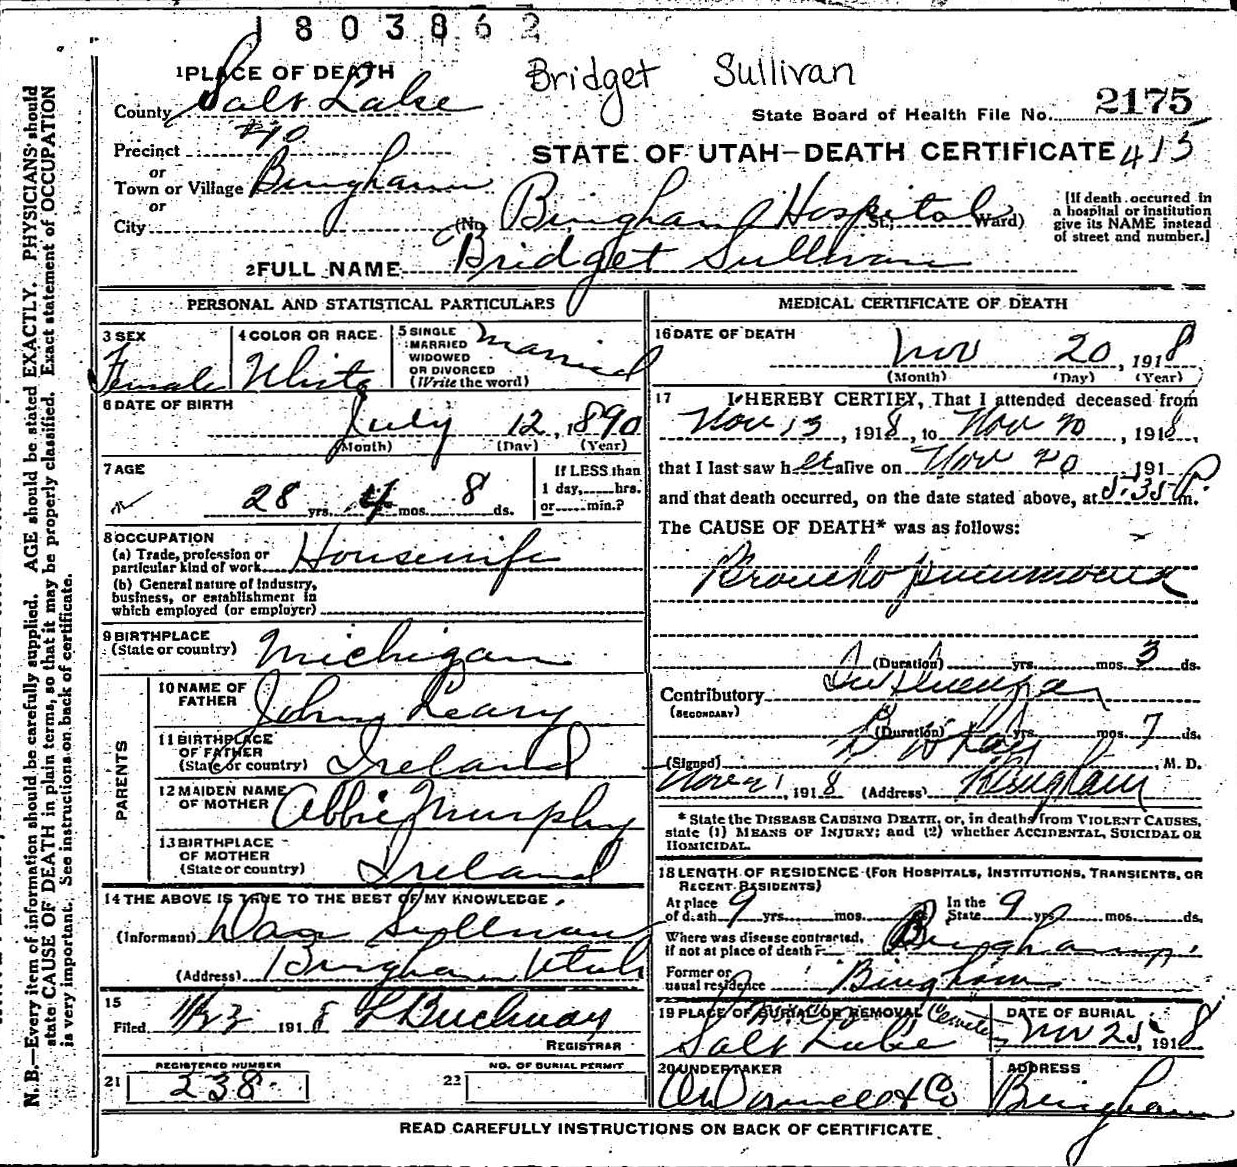 1803862
Bridget Sullivan
1 PLACE OF DEATH
County Salt Lake
State Board of Health File No. 2175
Precinct #40
STATE OF UTAH—DEATH CERTIFICATE 415
or
Town or Village Bingham
or
City
(No. Bingham Hospital St.; Ward)
[If death occurred in
a hospital or institution
give its NAME instead
of street and number.]
2 FULL NAME Bridget Sullivan
PERSONAL AND STATISTICAL PARTICULARS
3 SEX
Female
4 COLOR OR RACE
White
5 SINGLE
MARRIED
WIDOWED
OR DIVORCED
(Write the word)
Married
6 DATE OF BIRTH
July 12, 1890
(Month) (Day) (Year)
7 AGE
28 yrs. 4 mos. 8 ds.
If LESS than
1 day, hrs.
or min.?
8 OCCUPATION
(a) Trade, profession or
particular kind of work Housewife
(b) General nature of Industry,
business, or establishment in
which employed (or employer)
9 BIRTHPLACE
(State or country) Michigan
PARENTS
10 NAME OF
FATHER John Leary
11 BIRTHPLACE
OF FATHER
(State or country) Ireland
12 MAIDEN NAME
OF MOTHER Abbie Murphy
13 BIRTHPLACE
OF MOTHER
(State or country) Ireland
14 THE ABOVE IS TRUE TO THE BEST OF MY KNOWLEDGE
(Informant) Dan Sullivan
(Address) Bingham Utah
15
Filed 11/23 1918 Buchway
REGISTRAR
REGISTERED NUMBER
21 238
NO. OF BURIAL PERMIT
22
MEDICAL CERTIFICATE OF DEATH
16 DATE OF DEATH
Nov 20, 1918
(Month) (Day) (Year)
17 I HEREBY CERTIFY, That I attended deceased from
Nov 13, 1918, to Nov 20, 1918,
that I last saw her alive on Nov 20 191
and that death occurred, on the date stated above, at 5:35 P.m.
The CAUSE OF DEATH* was as follows:
Broncho pneumonia
(Duration) yrs. mos. 3 ds.
Contributory Influenza
(SECONDARY)
(Duration) yrs. mos. 7 ds.
(Signed) Ray, M. D.
Nov 21, 1918 (Address) Bingham
* State the DISEASE CAUSING DEATH, or, in deaths from VIOLENT CAUSES,
state (1) MEANS OF INJURY; and (2) whether ACCIDENTAL, SUICIDAL OR
HOMICIDAL.
18 LENGTH OF RESIDENCE (FOR HOSPITALS, INSTITUTIONS, TRANSIENTS, OR
RECENT RESIDENTS)
At place
of death 9 yrs. mos.
In the
State 9 yrs. mos. ds.
Where was disease contracted,
if not at place of death? Bingham
Former or
usual residence Bingham
19 PLACE OF BURIAL OR REMOVAL
Cemetery
Salt Lake
DATE OF BURIAL
Nov 25, 1918
20 UNDERTAKER
O'Donnell & Co
ADDRESS
Bingham
READ CAREFULLY INSTRUCTIONS ON BACK OF CERTIFICATE
N. B.—Every item of information should be carefully supplied. AGE should be stated EXACTLY. PHYSICIANS should
state CAUSE OF DEATH in plain terms, so that it may be properly classified. Exact statement of OCCUPATION
is very important. See instructions on back of certificate.